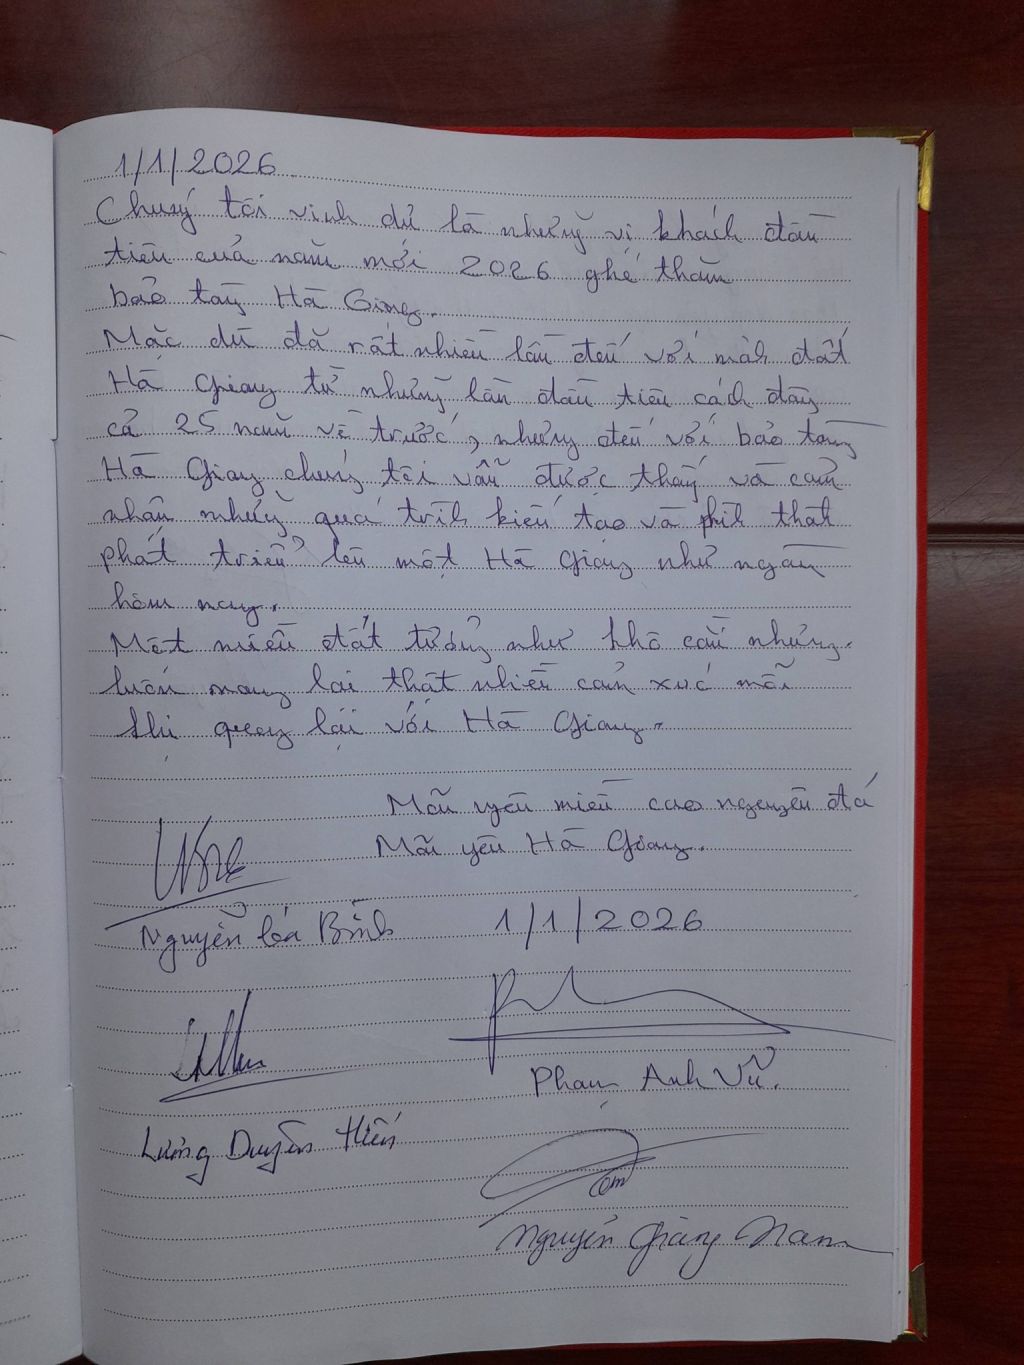 1/1/2026
Chúng tôi vinh dự là những vị khách đầu
tiên của năm mới 2026 ghé thăm
bảo tàng Hà Giang.
Mặc dù đã rất nhiều lần đến với mảnh đất
Hà Giang từ những lần đầu tiên cách đây
cả 25 năm về trước, nhưng đến với bảo tàng
Hà Giang chúng tôi vẫn được thấy và cảm
nhận những quá trình kiến tạo và phát
phát triển lên một Hà Giang như ngày
hôm nay.
Một miền đất tưởng như khô cằn nhưng
luôn mang lại thật nhiều cảm xúc mỗi
khi quay lại với Hà Giang.
Mãi yêu miền cao nguyên đá
Mãi yêu Hà Giang.
Nguyễn Bình
1/1/2026
Phạm Anh Vũ.
Lương Duyên Hiến
Nguyễn Giang Nam